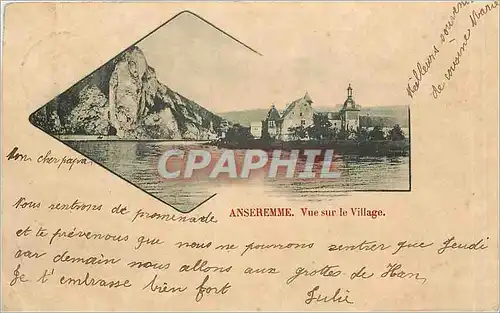 Meilleurs souvenirs
de cousine Marie
CPAPHIL
Mon cher papa
ANSEREMME. Vue sur le Village.
Nous rentrons de promenade
et te prévenons que nous ne pourrons rentrer que Jeudi
car demain nous allons aux grottes de Han,
Je t'embrasse bien fort
Julie